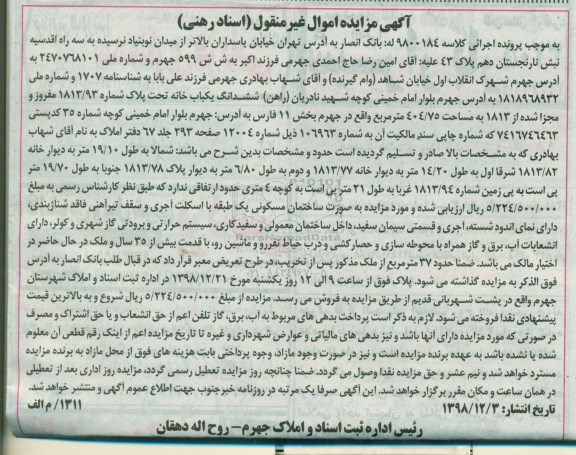 آگهی مزایده اموال غیرمنقول (اسناد رهنی)
به موجب پرونده اجرائی کلاسه ۹۸۰۰۱۸۴ له: بانک انصار به آدرس تهران خیابان پاسداران بالاتر از میدان نوبنیاد نرسیده به سه راه اقدسیه
نبش نارنجستان دهم پلاک ۴۳ علیه: آقای امین رضا حاج احمدی جهرمی فرزند اکبر به ش ش ۵۹۹ جهرم و شماره ملی ۲۴۷۰۷۶۸۱۰۱ به
آدرس جهرم شهرک انقلاب اول خیابان شاهد (وام گیرنده) و آقای شهاب بهادری جهرمی فرزند علی بابا به شناسنامه ۱۷۰۷ و شماره ملی
۱۸۱۸۹۶۸۹۳۲ به آدرس جهرم بلوار امام خمینی کوچه شهید نادریان (راهن) ششدانگ یکباب خانه تحت پلاک شماره ۱۸۱۳/۹۳ مفروز و
مجزا شده از ۱۸۱۳ به مساحت ۴۰۴/۷۵ مترمربع واقع در جهرم بخش ۱۱ فارس به آدرس: جهرم بلوار امام خمینی کوچه شماره ۳۵ کدپستی
۷۴۱۶۷۴۶۴۶۳ که شماره چاپی سند مالکیت آن به شماره ۱۰۶۹۶۳ ذیل شماره ۱۲۰۰۴ صفحه ۲۹۳ جلد ۶۷ دفتر املاک به نام آقای شهاب
بهادری که به مشخصات بالا صادر و تسلیم گردیده است حدود و مشخصات بدین شرح می باشد: شمالا به طول ۱۹/۱۰ متر به دیوار خانه
۱۸۱۳/۸۲ شرقا اول به طول ۱۴/۲۰ متر به دیوار خانه ۱۸۱۳/۷۷ و دوم به طول ۶/۸۰ متر به دیوار پلاک ۱۸۱۳/۷۸ جنوبا به طول ۱۹/۷۰ متر
پی است به پی زمین شماره ۱۸۱۳/۹۴ غربا به طول ۲۱ متر پی است به کوچه ۴ متری حدود ارتفاقی ندارد که طبق نظر کارشناس رسمی به مبلغ
۵/۲۲۴/۵۰۰/۰۰۰ ریال ارزیابی شده و مورد مزایده به صورت ساختمان مسکونی یک طبقه با اسکلت آجری و سقف تیرآهنی فاقد شناژبندی،
دارای نمای اندود شسته، آجری و قسمتی سیمان سفید، داخل ساختمان معمولی و سفیدکاری، سیستم حرارتی و برودتی گاز شهری و کولر، دارای
انشعابات آب، برق و گاز همراه با محوطه سازی و حصارکشی و درب حیاط نفررو و ماشین رو، با قدمت بیش از ۳۵ سال و ملک در حال حاضر در
اختیار مالک می باشد. ضمنا حدود ۳۷ مترمربع از ملک مذکور پس از تخریب، در طرح تعریض معبر قرار داد که در قبال طلب بانک انصار به آدرس
فوق الذکر به مزایده گذاشته می شود. پلاک فوق از ساعت ۹ الی ۱۲ روز یکشنبه مورخ ۱۳۹۸/۱۲/۲۱ در اداره ثبت اسناد و املاک شهرستان
جهرم واقع در پشت شهربانی قدیم از طریق مزایده به فروش می رسد. مزایده از مبلغ ۵/۲۲۴/۵۰۰/۰۰۰ ریال شروع و به بالاترین قیمت
پیشنهادی نقدا فروخته می شود. لازم به ذکر است پرداخت بدهی های مربوط به آب، برق، گاز تلفن اعم از حق انشعاب و یا حق اشتراک و مصرف
در صورتی که مورد مزایده دارای آنها باشد و نیز بدهی های مالیاتی و عوارض شهرداری و غیره تا تاریخ مزایده اعم از اینک رقم قطعی آن معلوم
شده یا نشده باشد به عهده برنده مزایده است و نیز در صورت وجود مازاد، وجوه پرداختی بابت هزینه های فوق از محل مازاد به برنده مزایده
مسترد خواهد شد و نیم عشر و حق مزایده نقدا وصول می گردد، ضمنا چنانچه روز مزایده تعطیل رسمی گردد، مزایده روز اداری بعد از تعطیلی
در همان ساعت و مکان مقرر برگزار خواهد شد. این آگهی صرفا یک مرتبه در روزنامه خبرجنوب جهت اطلاع عموم آگهی و منتشر خواهد شد.
تاریخ انتشار: ۱۳۹۸/۱۲/۳
۱۳۱۱/ م الف
رئیس اداره ثبت اسناد و املاک جهرم – روح اله دهقان